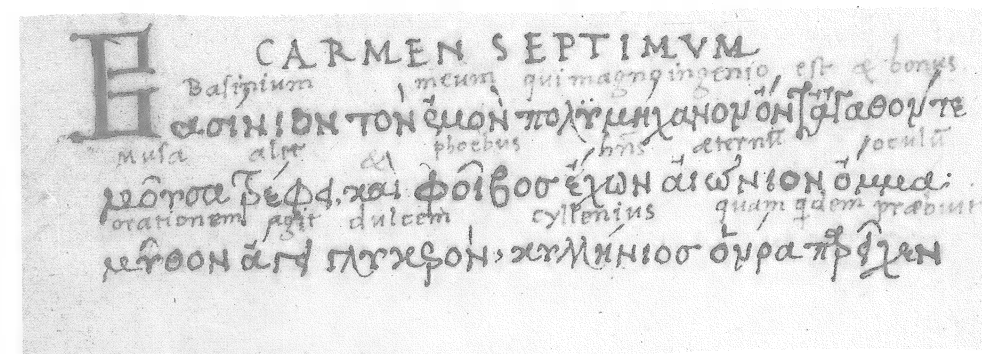 CARMEN SEPTIMVM
Basinium meum qui magno ingenio est & bonus
Βασινιον τὸν ἐμὸν πολϋμηχανον ὄντ ἀγαθόν τε
musa alit & phoebus hn̄s æternū oculū
μοῦσα τρέφει καὶ φοῖβος ἔχων αἰώνιον ὄμμα:
orationem agit dulcem cyllenius quam qdem præbuit
μῦθον ἄγει γλυκερὸν, κυλλήνιος ὅν ῥα παρεῖχεν